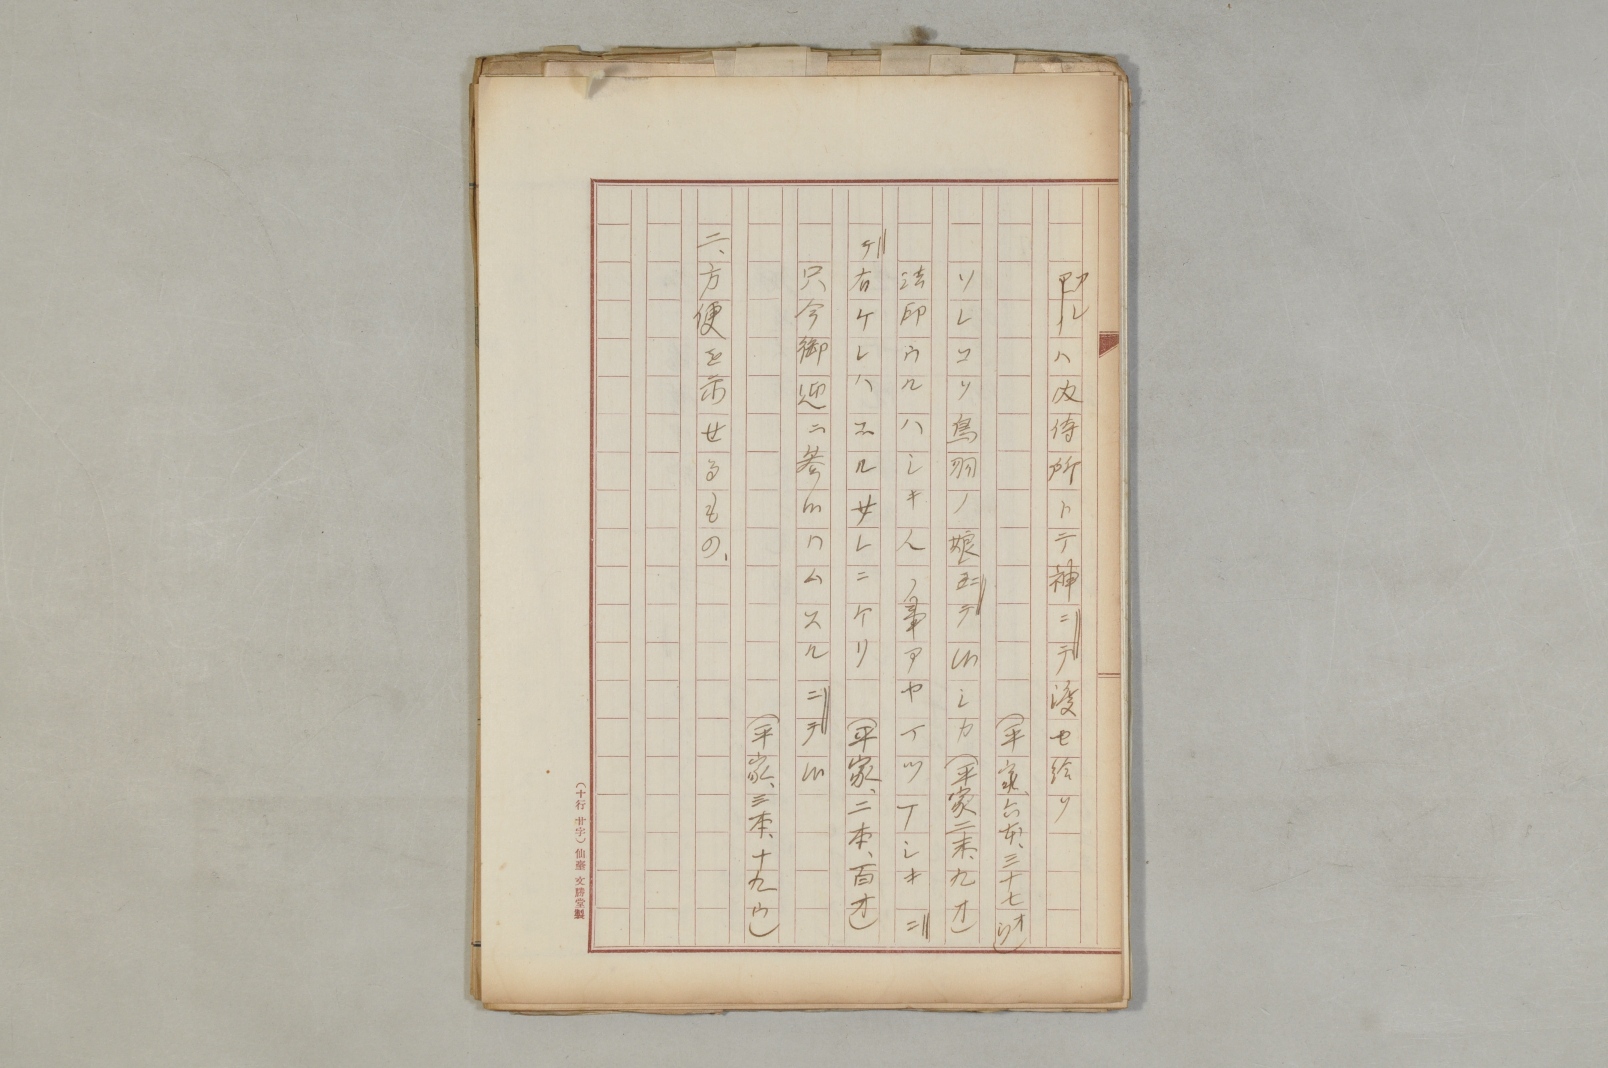 アレハ内侍所トテ神ニテ渡セ給ソ
(平家、六本、三十七オ)
ソレコソ鳥羽ノ娘ニテ候シカ(平家二末、九オ)
法印ウルハシキ人ノ事アヤイツイシキニ
テ有ケレハエルサレニケリ(平家、二本、百オ)
只今御迎ニ参候ハムスルニテ候
(平家、三本、十九ウ)
二、方便を示せるもの、
(十行 廿字) 仙臺 文勝堂製